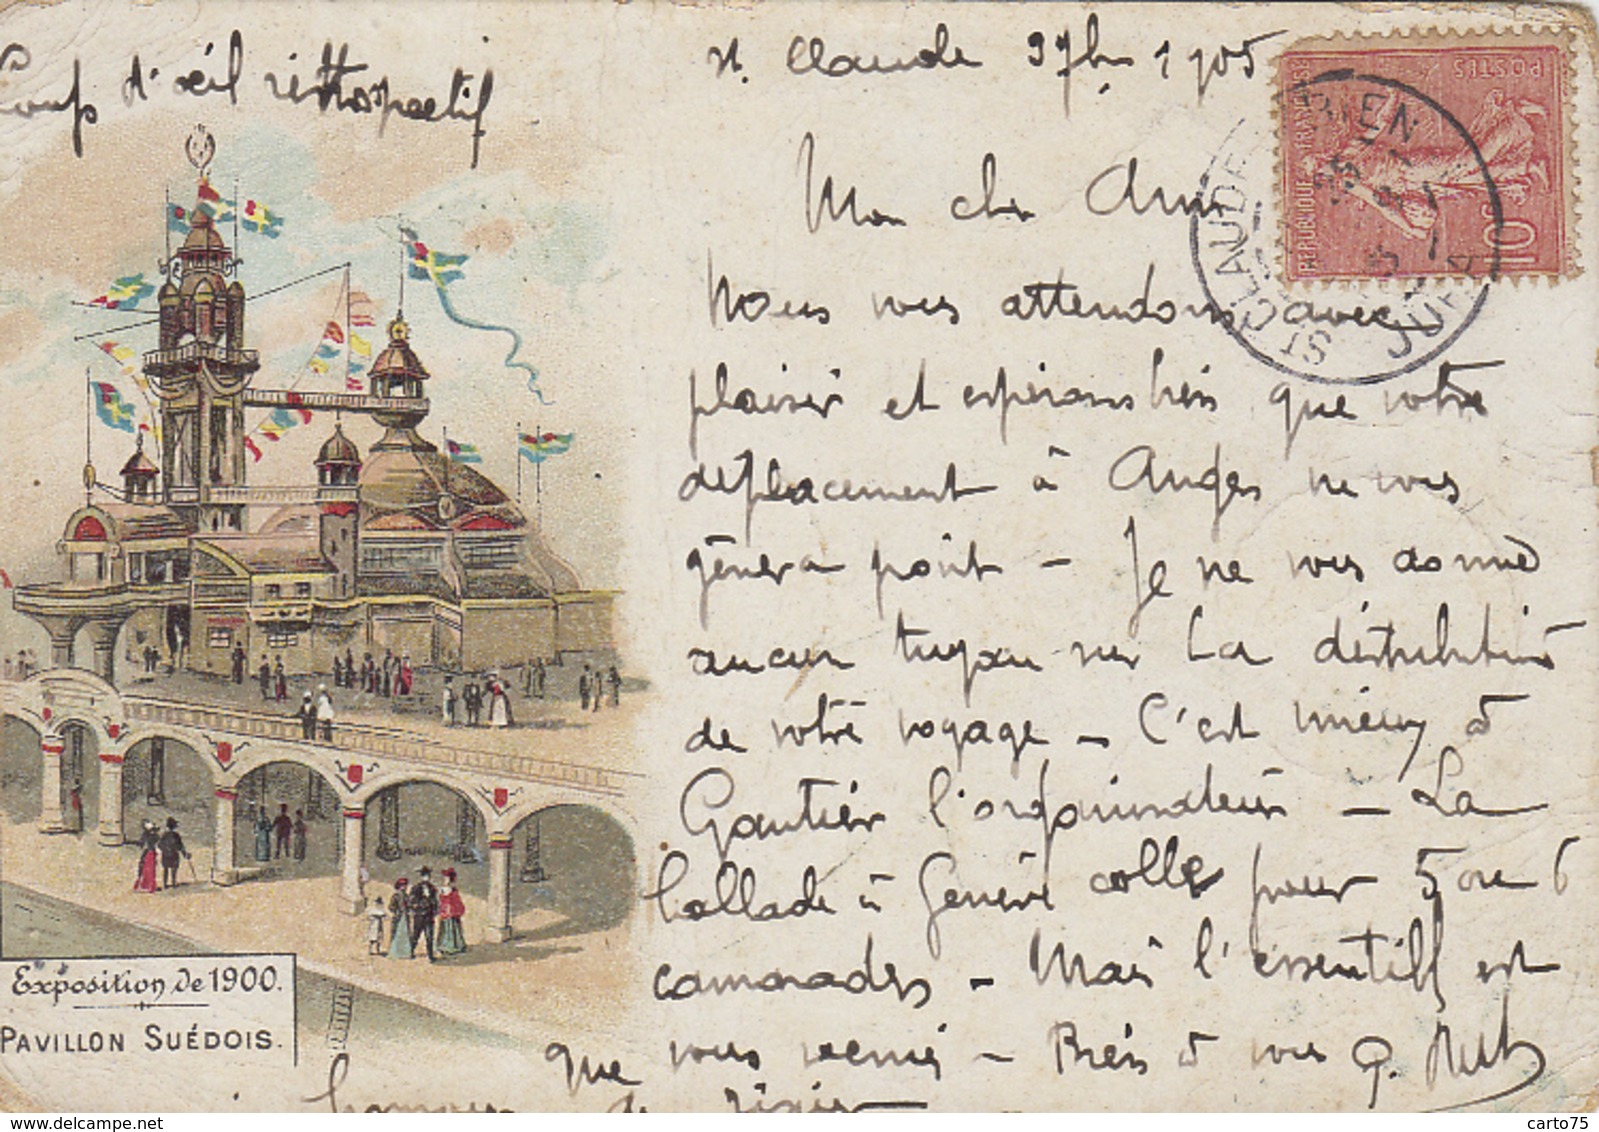 Coup d'œil rétrospectif
St. Claude 9 9bre 1905
Mon cher Ami
Nous vous attendons avec
plaisir et espérons bien que votre
deplacement à Anges ne vous
gênera point - Je ne vous donne
aucun tuyau sur la distribution
de votre voyage - C'est mieux à
Gautier l'organisateur - La
ballade à Genève colle pour 5 ou 6
camarades - Mais l'essentiell est
que vous veniez - Bien à vous G.
POSTES
REPUBLIQUE FRANÇAISE
10
ST CLAUDE
JURA
Exposition de 1900.
PAVILLON SUÉDOIS.
carto75